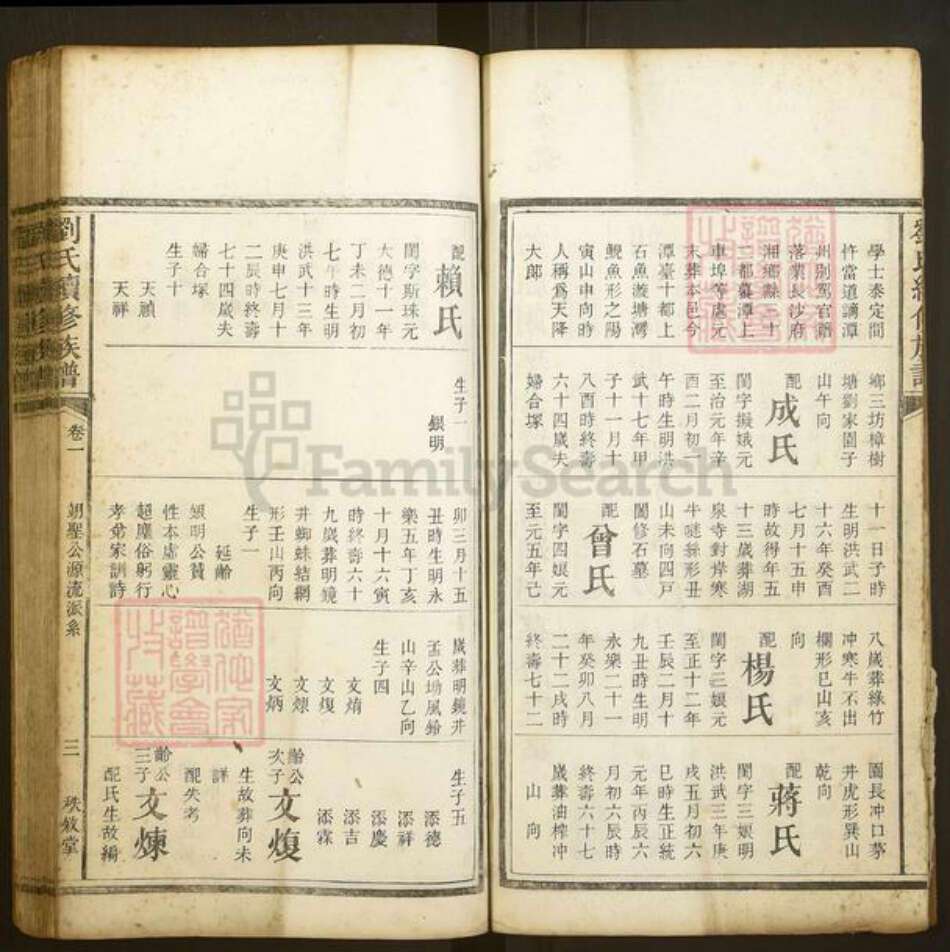 學士泰定間
忤當道謫潭
州別駕官贈
落業長沙府
湘鄉縣二十
二都墓潭上
車埠等處元
末葬本邑今
潭臺十都上
石魚漩塘灣
鯢魚形之陽
寅山申向時
人稱爲天降
大郎
鄉三坊樟樹
塘劉家園子
山午向
配成氏
閨字振娥元
至治元年辛
酉二月初一
午時生明洪
武十七年甲
子十一月十
八酉時終壽
六十四歲夫
婦合塚
十一日子時
生明洪武二
十六年癸酉
七月十五申
時故得年五
十三歲葬湖
泉寺對岸寒
牛𠵇絲形丑
山未向四戸
閤修石墓
配曾氏
閨字四娘元
至元五年己
八歲葬綠竹
冲寒牛不出
欄形巳山亥
向
配楊氏
閨字二娘元
至正十二年
壬辰二月十
九丑時生明
永樂二十一
年癸卯八月
二十二戌時
終壽七十二
園長冲口茅
井虎形巽山
乾向
配蔣氏
閨字三娘明
洪武三年庚
戌五月初六
巳時生正統
元年丙辰六
月初六辰時
終壽六十七
歲葬油榨冲
山向
配賴氏
閨字斯珠元
大德十一年
丁未二月初
七午時生明
洪武十三年
庚申七月十
二辰時終壽
七十四歲夫
婦合塚
生子十
天顯
天祥
生子一
銀明
卯三月十五
丑時生明永
樂五年丁亥
十月十六寅
時終壽六十
九歲葬明鏡
井蜘蛛結網
形壬山丙向
生子一
延齡
銀明公贊
性本虛靈心
超塵俗躬行
孝弟家訓詩
歲葬明鏡井
孟公坳風鈴
山辛山乙向
生子四
文焴
文煆
文煉
文炳
生子五
添德
添祥
添慶
添吉
添霖
齡公次子文煆
生故葬向未
詳
配失考
齡公三子文煉
配氏生故緝
劉氏續修族譜
卷一
朝聖公源流派系
三
秩敘堂
FamilySearch